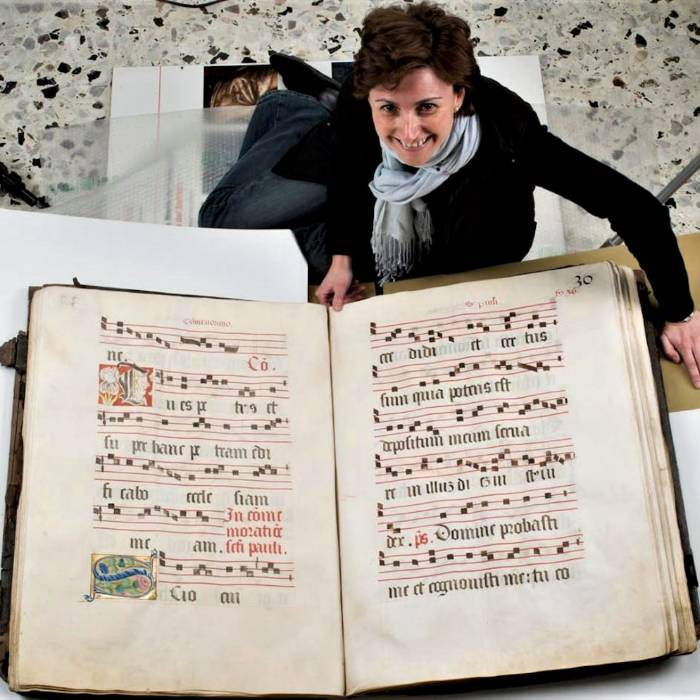 Co͞memoratio.
ne. Co͞.
Tu es pe trus et
su per hanc pe tram edi
fi cabo eccle siam
me am. In co͞me
moratio͞e
scti pauli.
Scio cui
30
cre didi et cer tus
sum quia potens est
depositum meum serua
re in illum di em iu stus iu
dex. ps. Domine probasti
me et cognouisti me: tu co